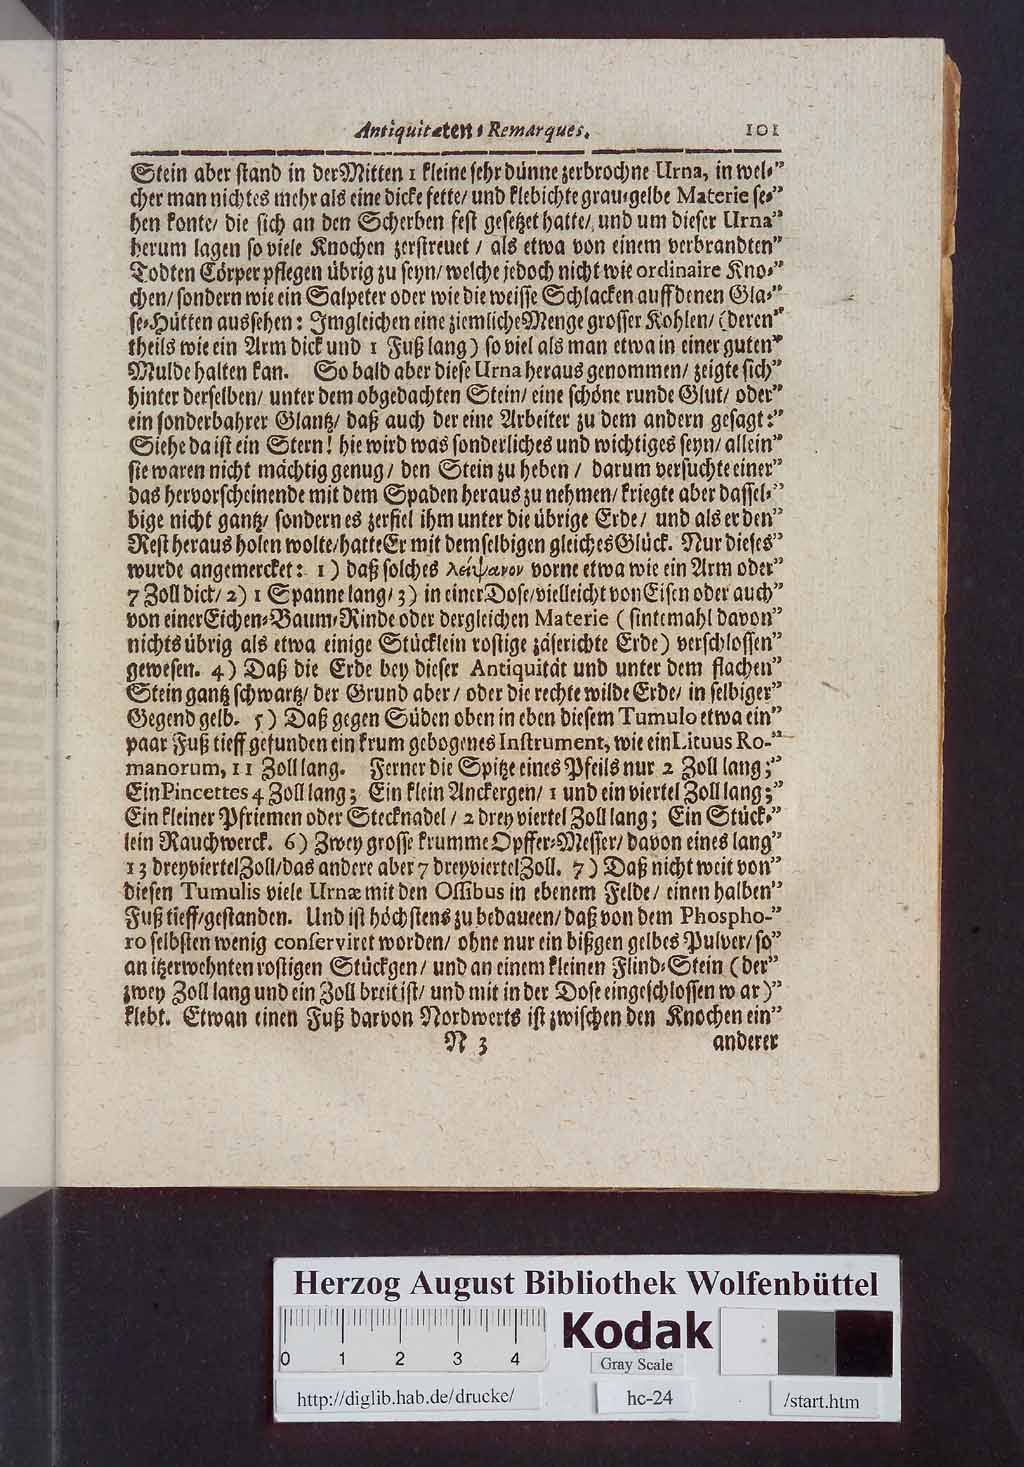 Antiquitæten-Remarques. 101
Stein aber stand in der Mitten 1 kleine sehr dünne zerbrochne Urna, in wel-”
cher man nichtes mehr als eine dicke fette/ und klebichte grau-gelbe Materie se-”
hen konte/ die sich an den Scherben fest gesetzet hatte/ und um dieser Urna”
herum lagen so viele Knochen zerstreuet / als etwa von einem verbrandten”
Todten Cörper pflegen übrig zu seyn/ welche jedoch nicht wie ordinaire Kno-”
chen/ sondern wie ein Salpeter oder wie die weisse Schlacken auff denen Gla-”
se-Hütten aussehen: Imgleichen eine ziemliche Menge grosser Kohlen/ (deren”
theils wie ein Arm dick und 1 Fuß lang) so viel als man etwa in einer guten”
Mulde halten kan. So bald aber diese Urna heraus genommen/ zeigte sich”
hinter derselben/ unter dem obgedachten Stein/ eine schöne runde Glut/ oder”
ein sonderbahrer Glantz/ daß auch der eine Arbeiter zu dem andern gesagt:”
Siehe da ist ein Stern! hie wird was sonderliches und wichtiges seyn/ allein”
sie waren nicht mächtig genug/ den Stein zu heben / darum versuchte einer”
das hervorscheinende mit dem Spaden heraus zu nehmen/ kriegte aber dassel-”
bige nicht gantz/ sondern es zerfiel ihm unter die übrige Erde/ und als er den”
Rest heraus holen wolte/ hatte Er mit demselbigen gleiches Glück. Nur dieses”
wurde angemercket: 1) daß solches λείψανον vorne etwa wie ein Arm oder”
7 Zoll dick/ 2) 1 Spanne lang/ 3) in einer Dose/ vielleicht von Eisen oder auch”
von einer Eichen-Baum-Rinde oder dergleichen Materie (sintemahl davon”
nichts übrig als etwa einige Stücklein rostige zäserichte Erde) verschlossen”
gewesen. 4) Daß die Erde bey dieser Antiquität und unter dem flachen”
Stein gantz schwartz/ der Grund aber/ oder die rechte wilde Erde/ in selbiger”
Gegend gelb. 5) Daß gegen Süden oben in eben diesem Tumulo etwa ein”
paar Fuß tieff gefunden ein krum gebogenes Instrument, wie ein Lituus Ro-”
manorum, 11 Zoll lang. Ferner die Spitze eines Pfeils nur 2 Zoll lang;”
Ein Pincettes 4 Zoll lang; Ein klein Anckergen/ 1 und ein viertel Zoll lang;”
Ein kleiner Pfriemen oder Stecknadel / 2 drey viertel Zoll lang; Ein Stück-”
lein Rauchwerck. 6) Zwey grosse krumme Opffer-Messer/ davon eines lang”
13 dreyviertel Zoll/ das andere aber 7 dreyviertel Zoll. 7) Daß nicht weit von”
diesen Tumulis viele Urnæ mit den Ossibus in ebenem Felde/ einen halben”
Fuß tieff/ gestanden. Und ist höchstens zu bedauren/ daß von dem Phospho-”
ro selbsten wenig conserviret worden/ ohne nur ein bißgen gelbes Pulver/ so”
an itzerwehnten rostigen Stückgen/ und an einem kleinen Flind-Stein (der”
zwey Zoll lang und ein Zoll breit ist/ und mit in der Dose eingeschlossen war)”
klebt. Etwan einen Fuß darvon Nordwerts ist zwischen den Knochen ein”
N 3 anderer
Herzog August Bibliothek Wolfenbüttel
0 1 2 3 4
Kodak
Gray Scale
http://diglib.hab.de/drucke/ hc-24 /start.htm